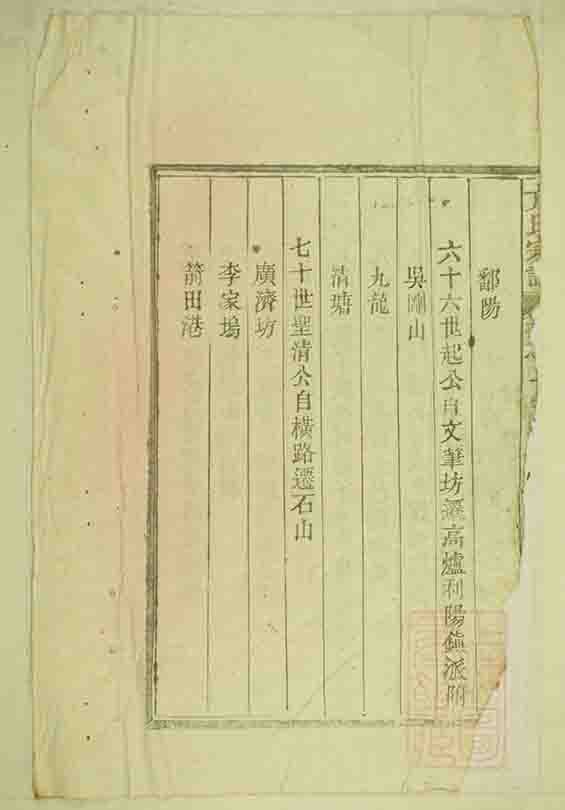 鄱陽
六十六世起公自文筆坊遷高爐利陽鎮派附
吳剛山
九龍
清塘
七十世聖清公自橫路遷石山
廣濟坊
李家塢
箭田港